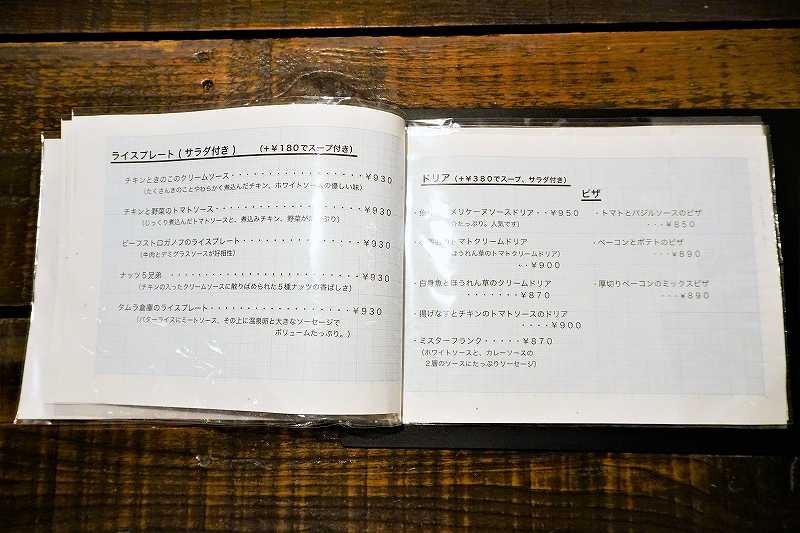 ライスプレート(サラダ付き) (+¥180でスープ付き)
チキンときのこのクリームソース・・・・・・・・・・・・・・・・・・¥930
(たくさんきのことやわらかく煮込んだチキン、ホワイトソースの優しい味)
チキンと野菜のトマトソース・・・・・・・・・・・・・・・・・・・・¥930
(じっくり煮込んだトマトソースと、煮込みチキン、野菜が ぷり)
ビーフストロガノフのライスプレート・・・・・・・・・・・・・・・・¥930
(牛肉とデミグラスソースが好相性)
ナッツ5兄弟 ・・・・・・・・・・・・・・・・・・・・・・・・・・¥930
(チキンの入ったクリームソースに散りばめられた5種ナッツの香ばしさ)
タムラ倉庫のライスプレート・・・・・・・・・・・・・・・・・・・¥930
(バターライスにミートソース、その上に温泉卵と大きなソーセージで
ボリュームたっぷり。)
ドリア(+¥380でスープ、サラダ付き)
・ メリケーヌソースドリア・・¥950
たっぷり。人気です)
トマトクリームドリア
ほうれん草のトマトクリームドリア)
・・¥900
・白身魚とほうれん草のクリームドリア
・・・・・・・・¥870
・揚げなすとチキンのトマトソースのドリア
・・・・¥900
・ミスターフランク・・・・・¥870
(ホワイトソースと、カレーソースの
2層のソースにたっぷりソーセージ)
ピザ
・トマトとバジルソースのピザ
・・・¥850
・ベーコンとポテトのピザ
・・・¥890
・厚切りベーコンのミックスピザ
・・・¥890